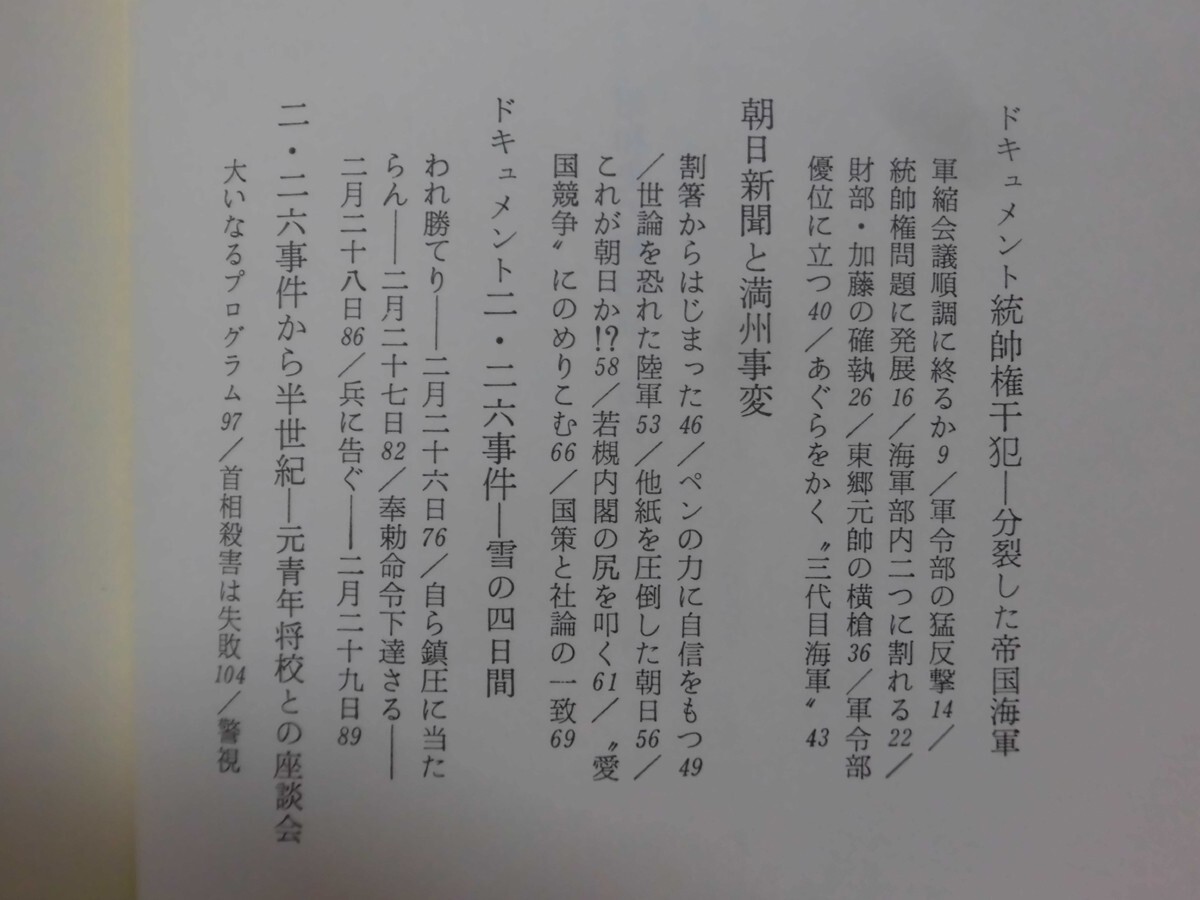 ドキュメント統帥権干犯―分裂した帝国海軍
軍縮会議順調に終るか9／軍令部の猛反撃14／
統帥権問題に発展16／海軍部内二つに割れる22／
財部・加藤の確執26／東郷元帥の横槍36／軍令部
優位に立つ40／あぐらをかく〝三代目海軍〟43
朝日新聞と満州事変
割箸からはじまった46／ペンの力に自信をもつ49
／世論を恐れた陸軍53／他紙を圧倒した朝日56／
これが朝日か!?58／若槻内閣の尻を叩く61／〝愛
国競争〟にのめりこむ66／国策と社論の一致69
ドキュメント二・二六事件―雪の四日間
われ勝てり――二月二十六日76／自ら鎮圧に当た
らん――二月二十七日82／奉勅命令下達さる――
二月二十八日86／兵に告ぐ――二月二十九日89
二・二六事件から半世紀―元青年将校との座談会
大いなるプログラム97／首相殺害は失敗104／警視